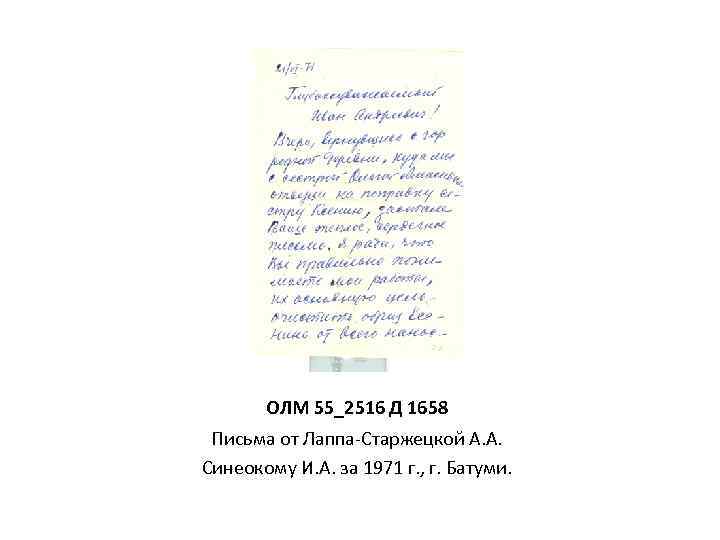 21/VI-71
Глубокоуважаемый
Иван Андреевич!
Вчера, вернувшись с гор
родной деревни, куда мы
с сестрой Ольгой
отвезли на поправку се-
стру Ксению, застала
Ваше теплое, сердечное
письмо. Я рада, что
Вы правильно пони-
маете мои работы,
их основную цель -
очистить образ Есе-
нина от всего нанос-
ОЛМ 55_2516 Д 1658
Письма от Лаппа-Старжецкой А. А.
Синеокому И. А. за 1971 г. , г. Батуми.